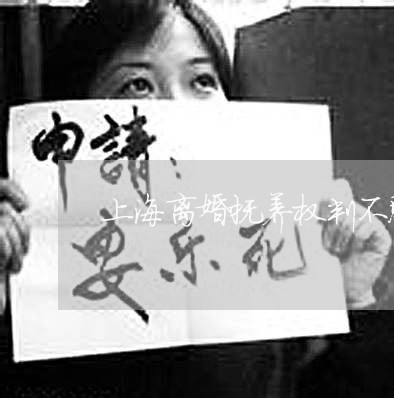 申請：
上海离婚抚养权判不
安乐死